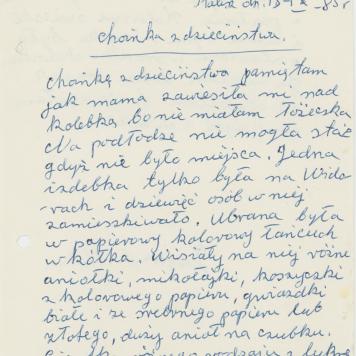 dn. 13 IX -83 r
Choinka z dzieciństwa.
Choinkę z dzieciństwa pamiętam
jak mama zawiesiła mi nad
kolebką bo nie miałam łóżeczka
Na podłodze nie mogła stać
gdyż nie było miejsca. Jedna
izdebka tylko była na Wido-
-rach i dziewięć osób w niej
zamieszkiwało. Ubrana była
w papierowy kolorowy łańcuch
w kółka. Wisiały na niej różne
aniołki, mikołajki, koszyczki
z kolorowego papieru, gwiazdki
białe i ze srebrnego papieru lub
złotego, duży anioł na czubku.
rodzaju